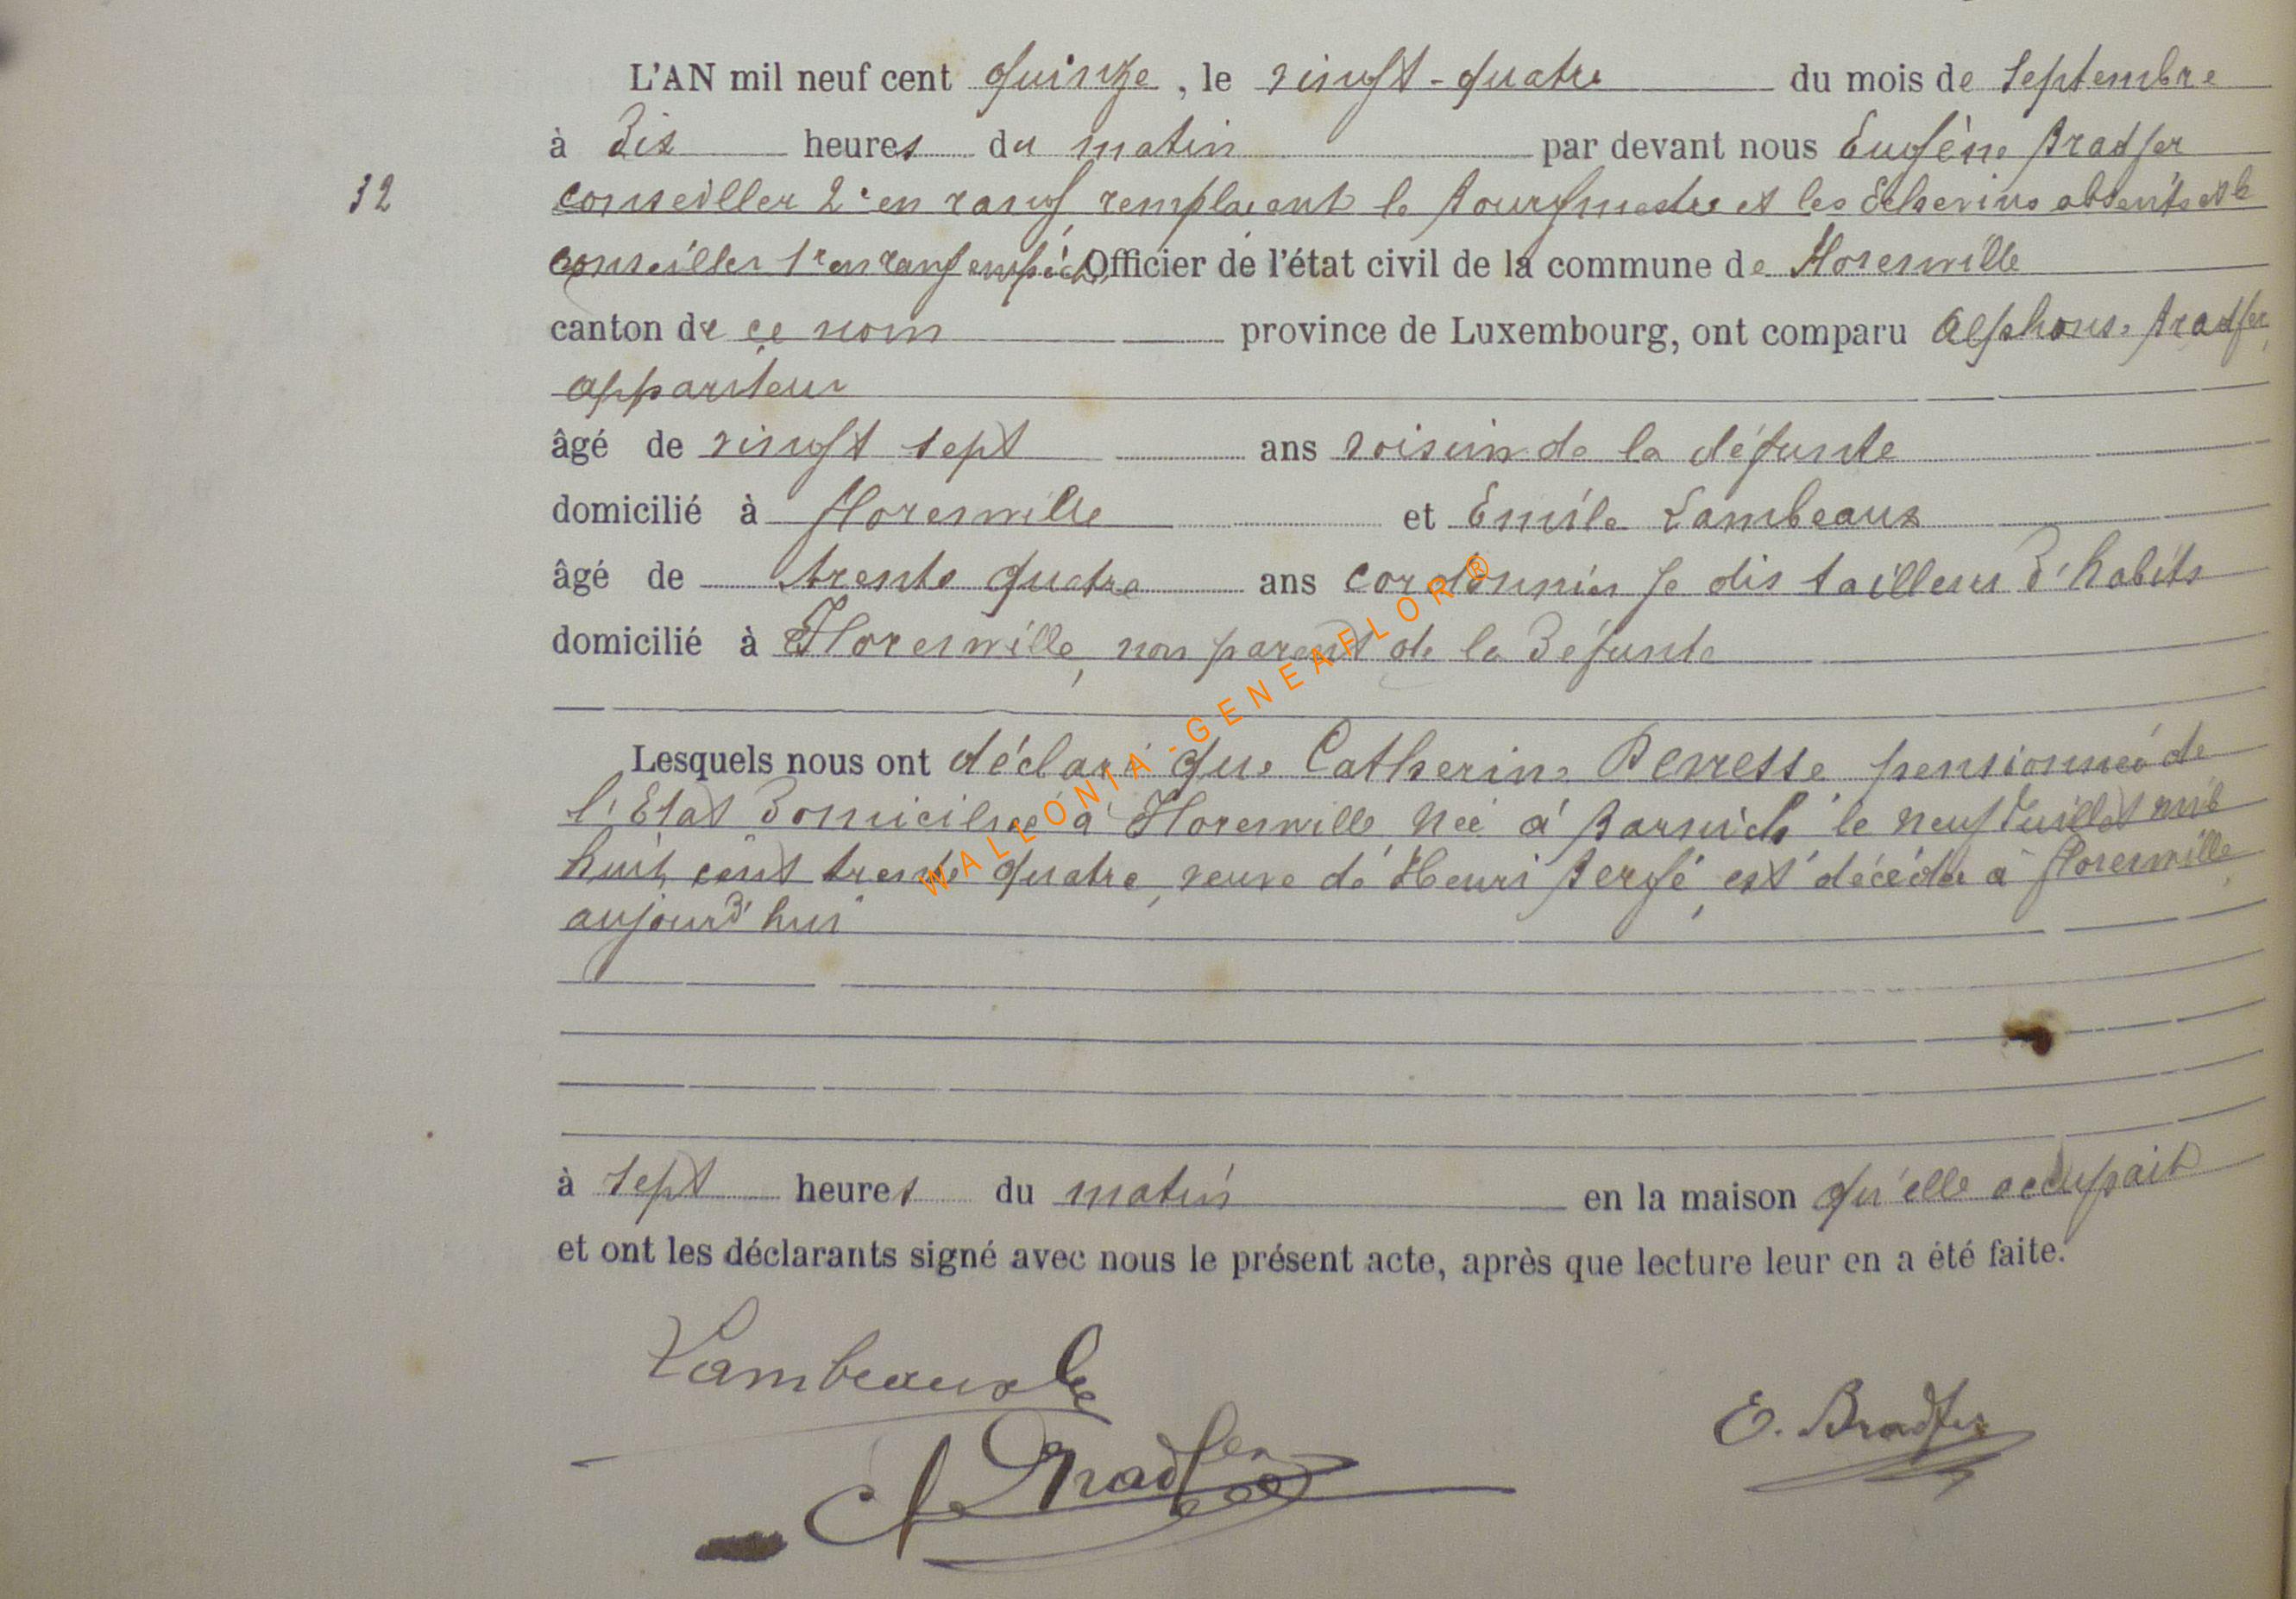 L'AN mil neuf cent quinze, le vingt-quatre du mois de septembre
à dix heures du matin par devant nous Eugène Bradfer
32
conseiller 2e en rang remplaçant le bourgmestre et les Echevins absents et le
conseiller 1er en rang empêché, Officier de l'état civil de la commune de Florenville
canton de ce nom province de Luxembourg, ont comparu Alphonse Bradfer,
appariteur
âgé de vingt sept ans voisin de la défunte
domicilié à Florenville et Emile Lambeaux
âgé de trente quatre ans cordonnier je dis tailleur d'habits
domicilié à Florenville, non parent de la défunte
Lesquels nous ont déclaré que Catherine pensionnée de
l'Etat domiciliée à Florenville née à Barnich le neuf Juillet mil
huit cent trente quatre, veuve de Henri Bergé, est décédée à Florenville,
aujourd'hui
à sept heures du matin en la maison qu'elle occupait
et ont les déclarants signé avec nous le présent acte, après que lecture leur en a été faite.
Lambeaux
E. Bradfer
A Bradfer
WALLONIA-GENEAFLOR®